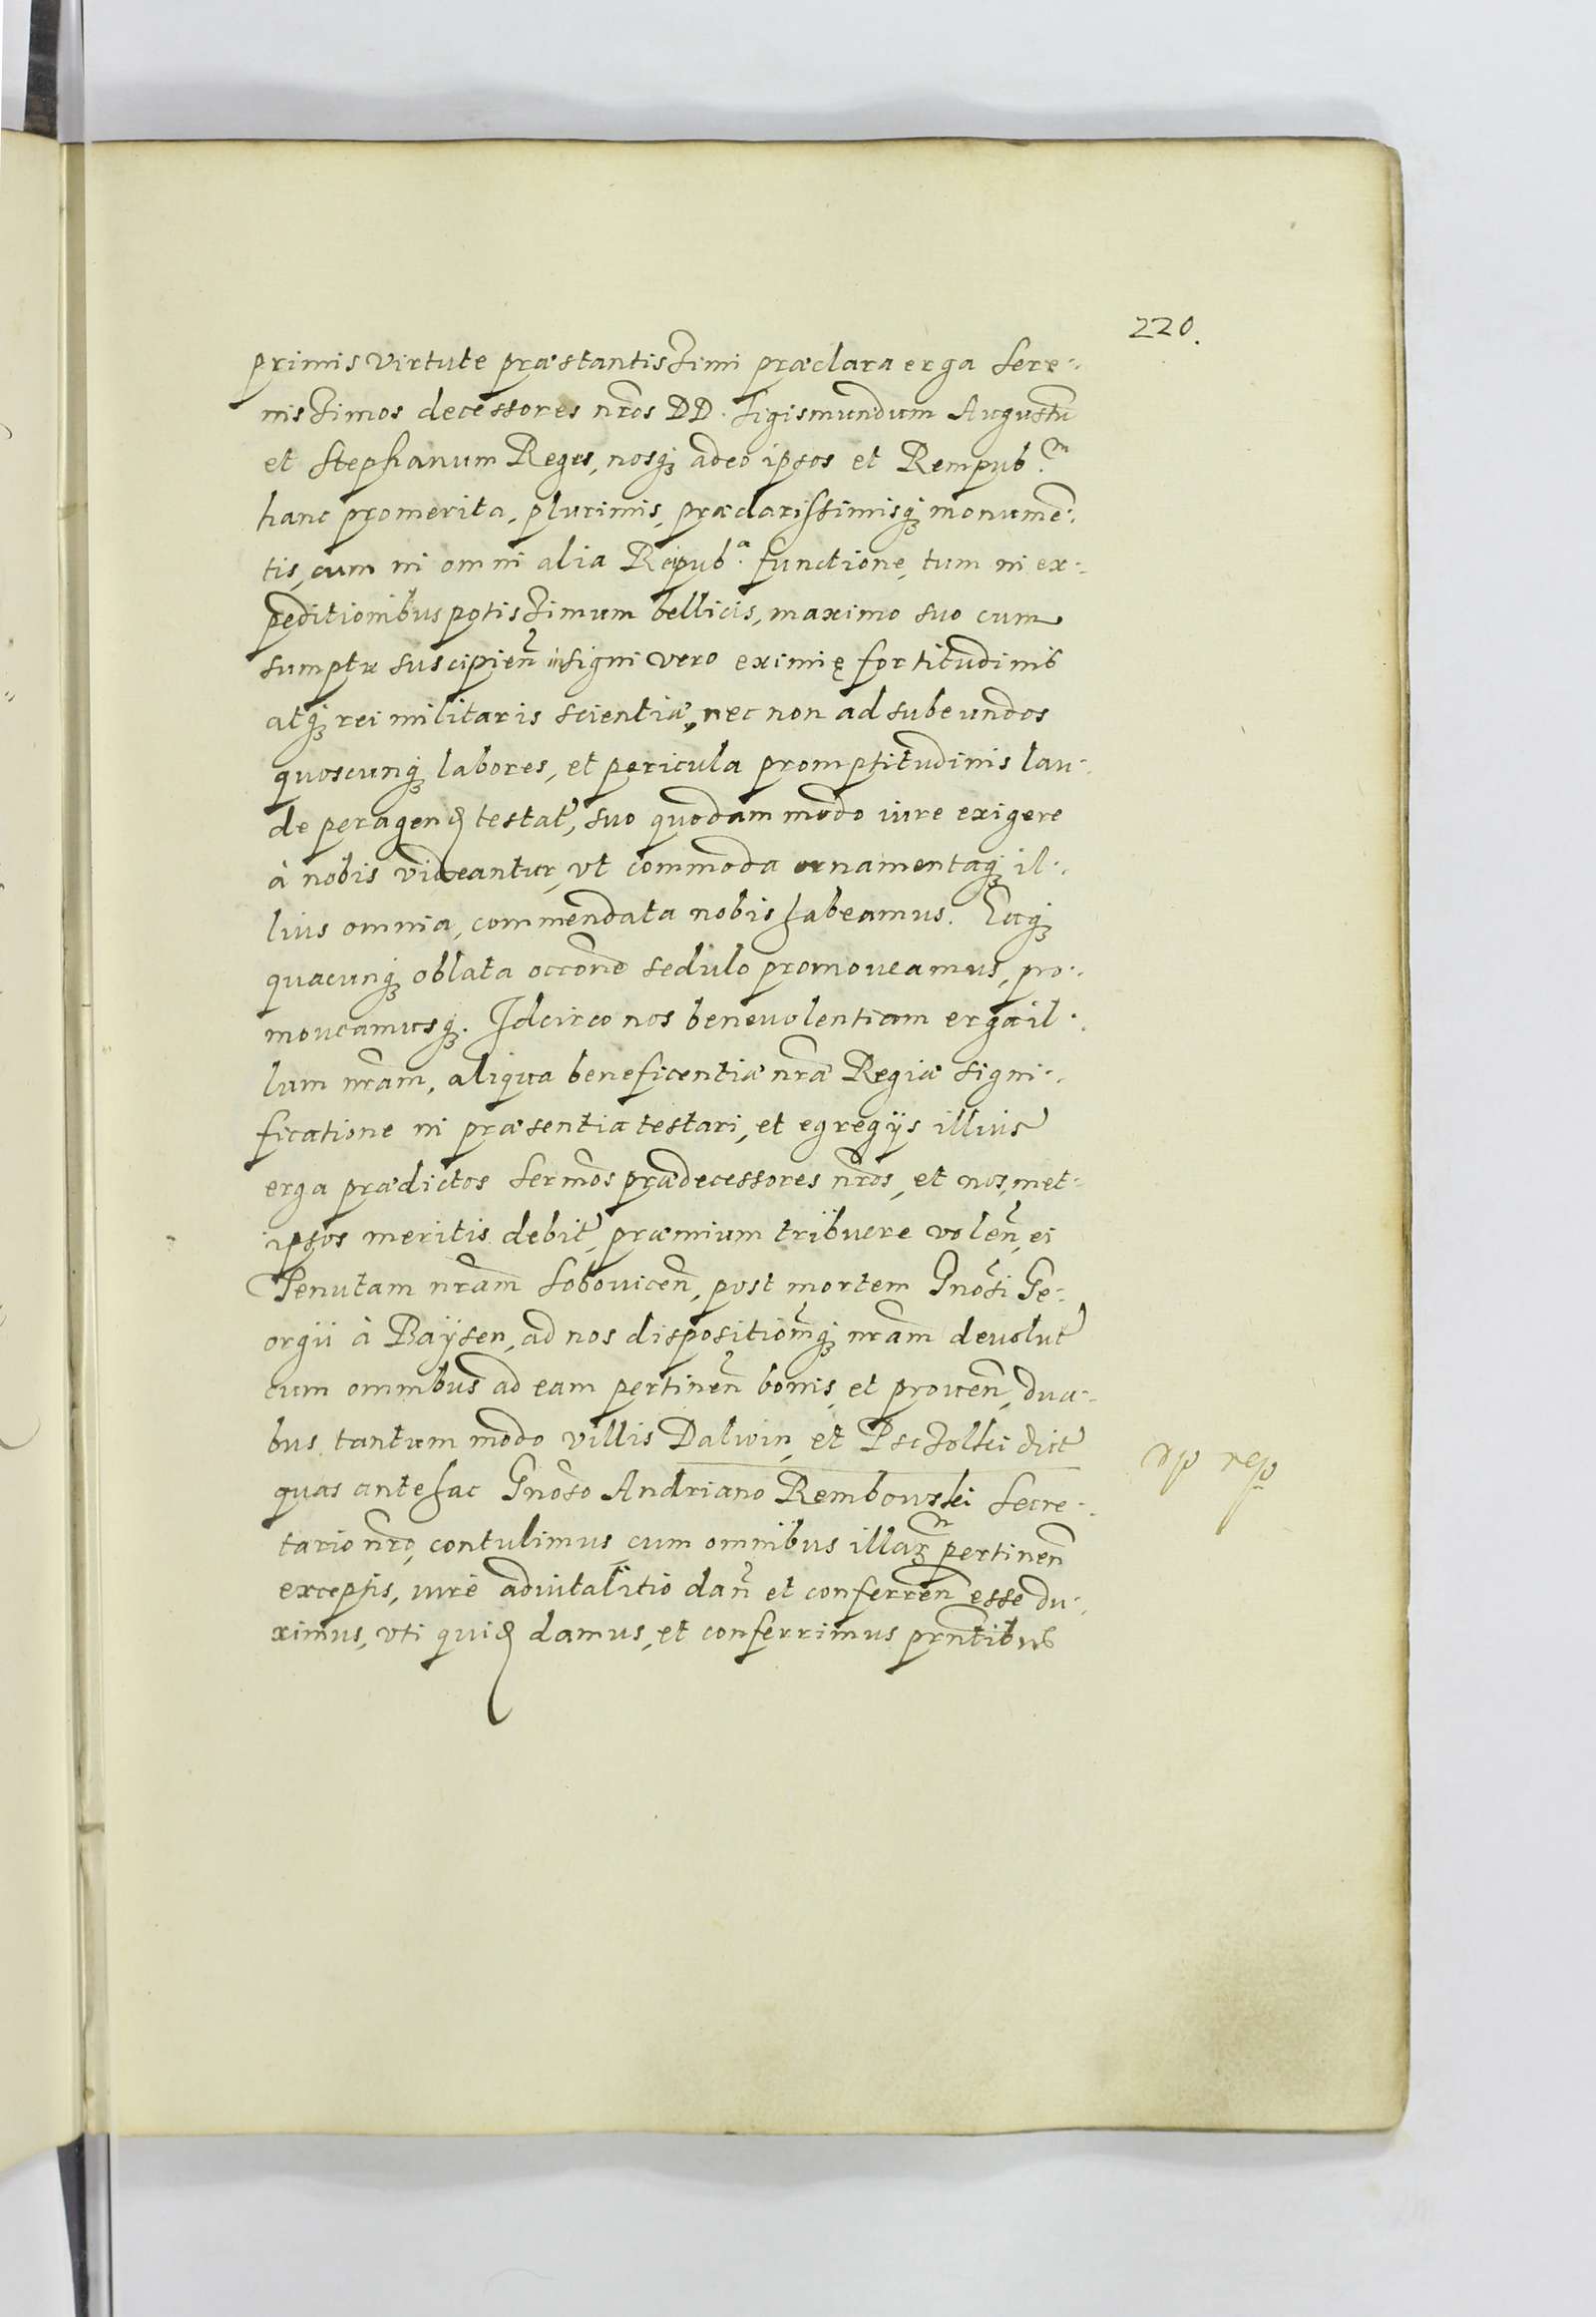 220.
primis virtute præstantissimi præclara erga Sere-
nissimos decessores nr̃os DD. Sigismundum Augustũ
et Stephanum Reges, nosq; adeo ipsos et Rempub.m
hanc promerita, plurimis, præclarissimisq; monumẽ-
tis, cum in omni alia Reipub.a functione, tum in ex-
peditionibus potissimum bellicis, maximo suo cum
sumptu suscipien̄ insigni vero eximię fortitudinis
atq; rei militaris scientiæ, nec non ad subeundos
quoscunq; labores, et pericula promptitudinis lau-
de peragend testat, suo quodam modo iure exigere
à nobis videantur, vt commoda ornamentaq; il-
lius omnia, commendata nobis habeamus. Eaq;
quacunq; oblata occ̃one sedulo promoueamus, pro-
moueamusq;. Idcirco nos beneuolentiam erga il-
lum nr̃am, aliqua beneficentiæ nr̃æ Regiæ signi-
ficatione in præsentia testari, et egregijs illius
erga prædictos Serm̃os prædecessores nr̃os, et nosmet-
ipsos meritis debit, præmium tribuere volen̄, ei
Tenutam nr̃am Sobouicen̄, post mortem Gnõsi Ge-
orgii à Baÿsen, ad nos dispositiom̃q; nr̃am deuolut
cum omnibus ad eam pertinen̄ bonis, et prouen̄, dua-
bus tantum modo villis Dalwin, et Psczolki dict
quas antehac Gnõso Andriano Rembowski Secre-
tario nr̃o, contulimus cum omnibus illaꝝ pertinen̄
exceptis, iure aduitalitio dan̄ et conferren̄ esse du-
ximus, vti quid damus, et conferrimus prñtibus